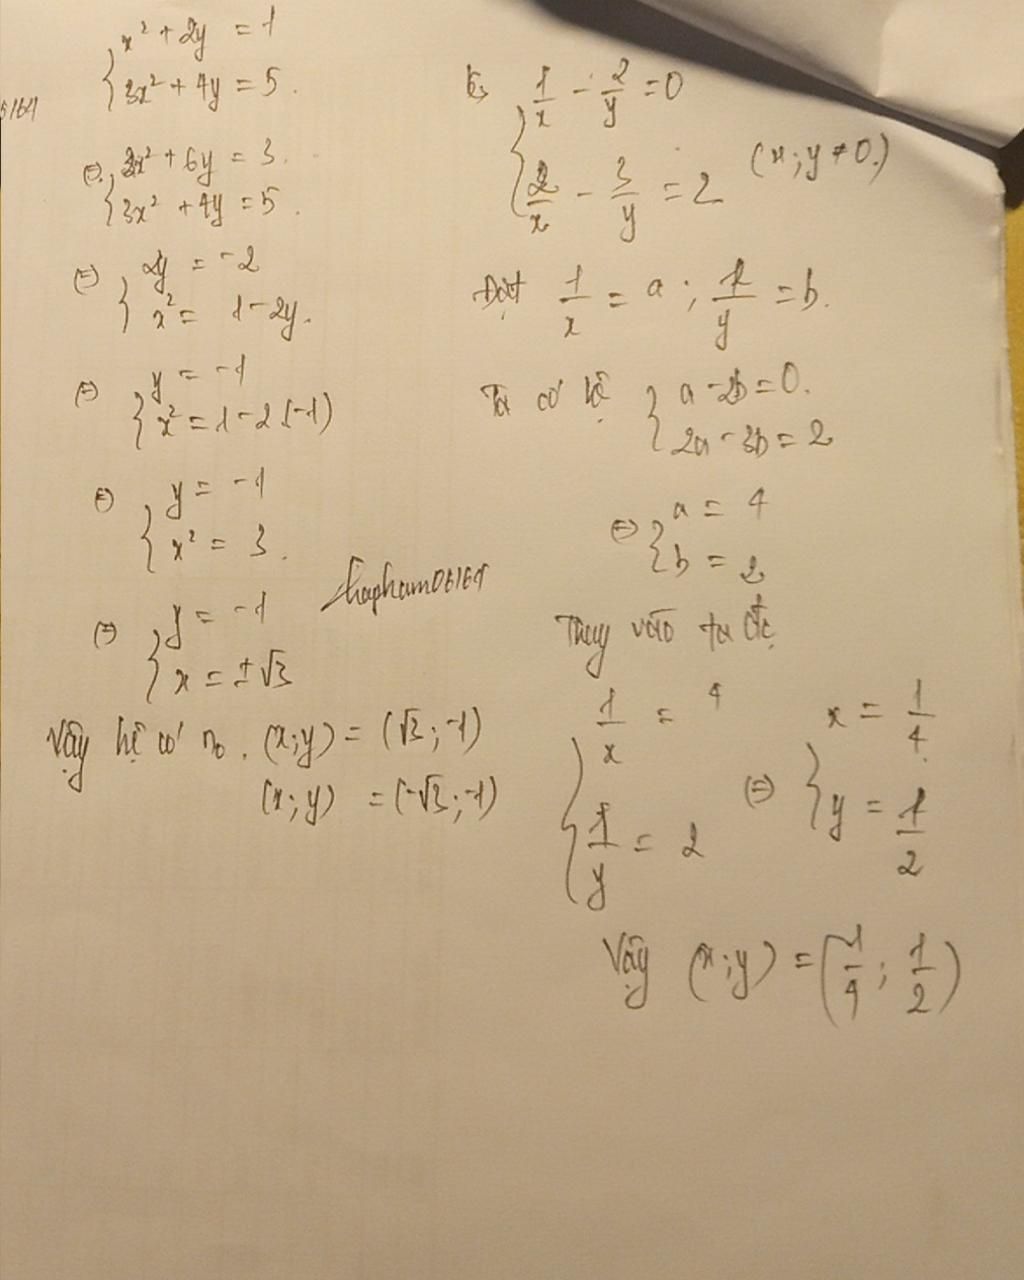 x² + 2y = 1
3x² + 4y = 5.
⇔ 3x² + 6y = 3.
3x² + 4y = 5.
⇔ 2y = -2
x² = 1 - 2y.
⇔ y = -1
x² = 1 - 2.(-1)
⇔ y = -1
x² = 3.
⇔ y = -1
x = ±√3
Vậy hệ có n₀. (x;y) = (√3;-1)
(x;y) = (-√3;-1)
hapham06164
b, 1/x - 2/y = 0
2/x - 3/y = 2 (x;y ≠ 0.)
Đặt 1/x = a ; 1/y = b.
Ta có hệ a - 2b = 0.
2a - 3b = 2
⇔ a = 4
b = 2
Thay vào ta đc
1/x = 4 ⇔ x = 1/4.
1/y = 2 y = 1/2
Vậy (x;y) = (1/4 ; 1/2)